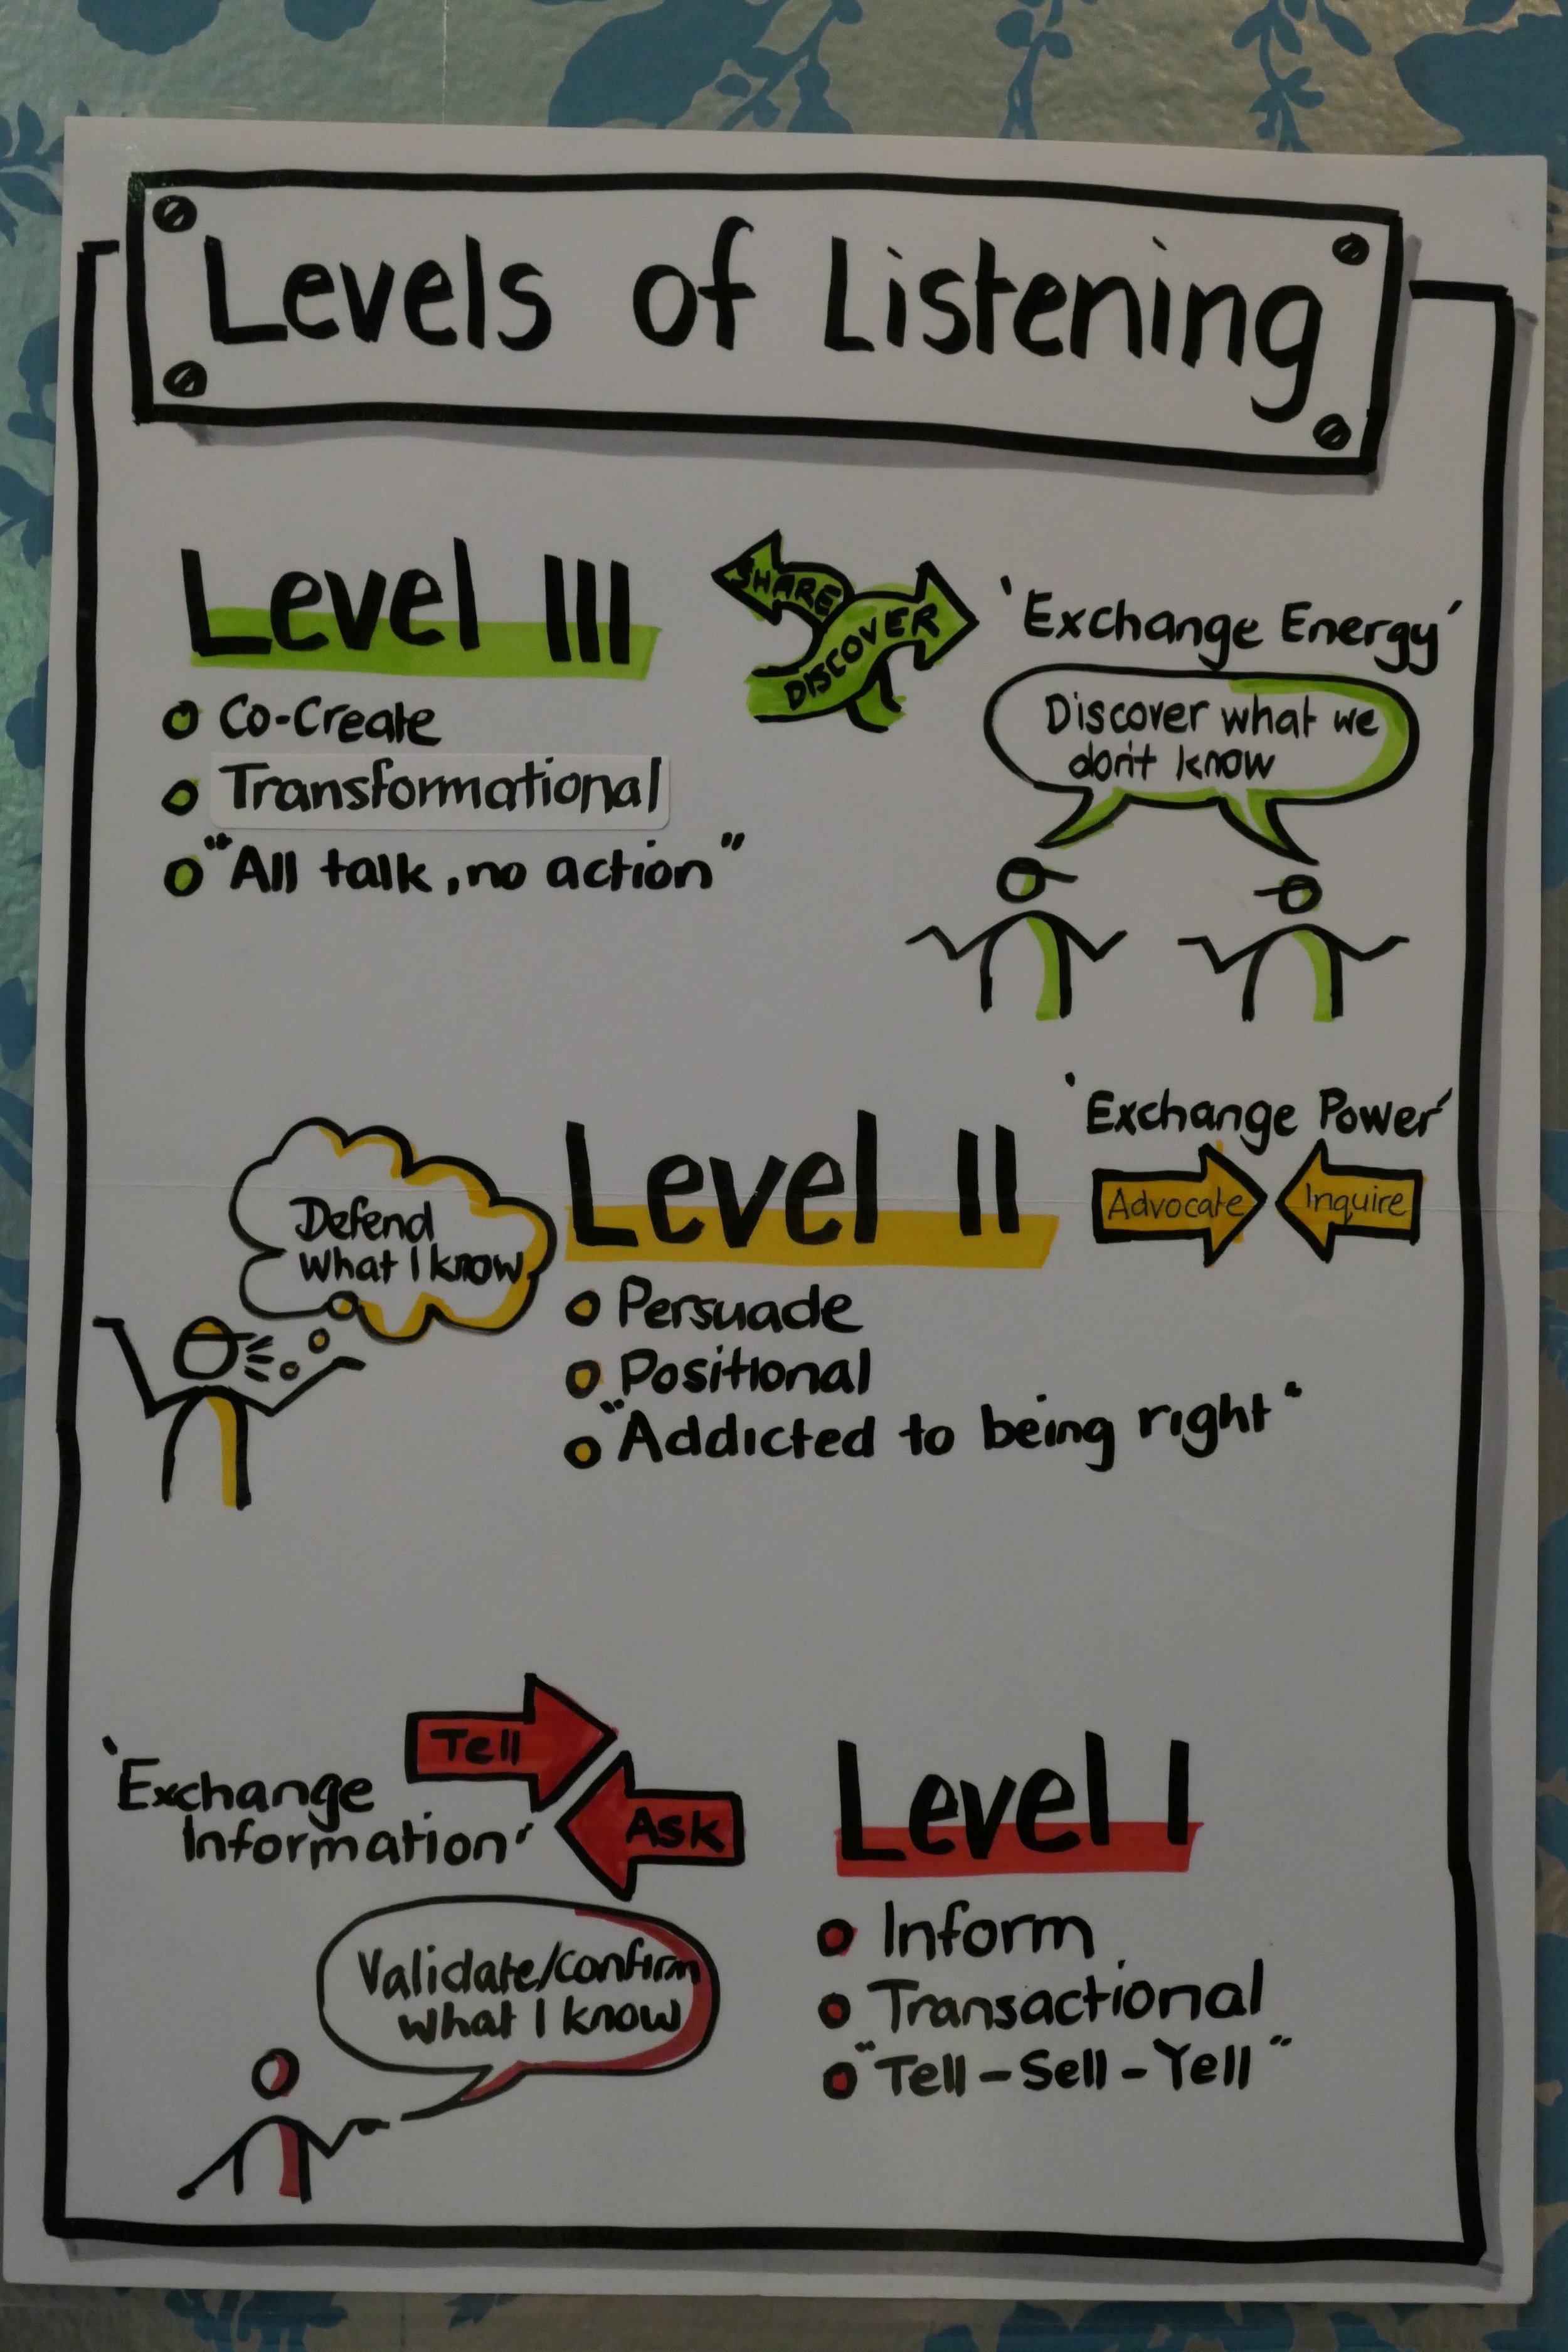 Levels of Listening
Level III
SHARE
DISCOVER
'Exchange Energy'
Discover what we
don't know
Co-Create
Transformational
"All talk, no action"
'Exchange Power'
Advocate
Inquire
Level II
Defend
what I know
Persuade
Positional
"Addicted to being right"
Tell
Ask
'Exchange
Information'
Level I
Validate/confirm
what I know
Inform
Transactional
"Tell-Sell-Yell"